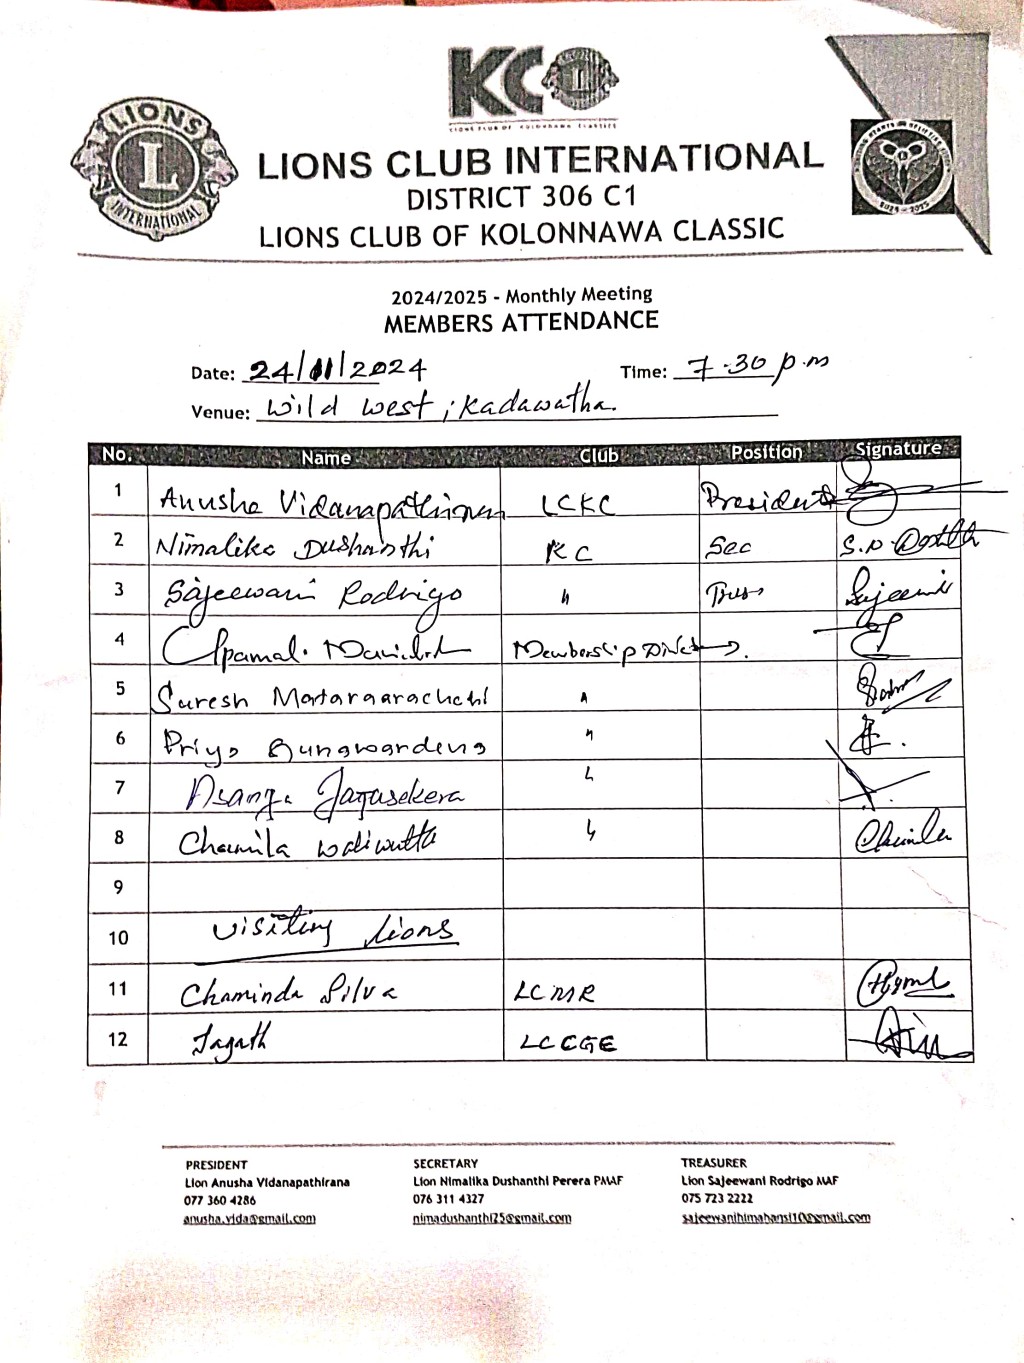 KC
LIONS CLUB OF KOLONNAWA CLASSICS
LIONS
L
INTERNATIONAL
LIONS CLUB INTERNATIONAL
DISTRICT 306 C1
LIONS CLUB OF KOLONNAWA CLASSIC
2024-2025
2024/2025 - Monthly Meeting
MEMBERS ATTENDANCE
Date: 24/11/2024 Time: 7.30 p.m
Venue: Wild West, Kadawatha.
No. Name Club Position Signature
1 Anusha Vidanapathirana LCKC President
2 Nimalika Dushanthi KC Sec
3 Sajeewani Rodrigo " Sajeewani
4 Membership
5 Suresh Mataraarachchi "
6 Priya Gunawardena "
7 Asanga Jayasekera "
8 Chamila "
9
10 Visiting Lions
11 Chaminda Silva LCMR
12 Jagath LCCGE
PRESIDENT SECRETARY TREASURER
Lion Anusha Vidanapathirana Lion Nimalika Dushanthi Perera PMAF Lion Sajeewani Rodrigo MAF
077 360 4286 076 311 4327 075 723 2222
anusha.vida@gmail.com nimadushanthi25@gmail.com sajeewanihimahansi10@gmail.com